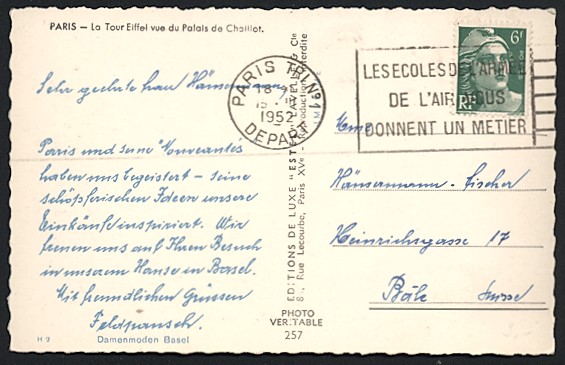 PARIS – La Tour Eiffel vue du Palais de Chaillot.
Sehr geehrte Frau Hänsermann
Paris und seine "Nouveautés
haben uns begeistert – seine
schöpferischen Ideen unsere
Einkäufe inspiriert. Wir
freuen uns auf Ihren Besuch
in unserem Hause in Basel.
Mit freundlichen Grüssen
Feldpausch.
H 2
Damenmoden Basel
EDITIONS DE LUXE "ESTEL"
Rue Lecourbe, Paris XVe - Reproduction interdite
PHOTO
VERITABLE
257
PARIS TRI No 1
18
1952
DEPART
LES ECOLES DE L'ARMEE
DE L'AIR VOUS
DONNENT UN METIER
6F
RF
Mme
Hänsermann-Fischer
Heinrichsgasse 17
Bâle Suisse